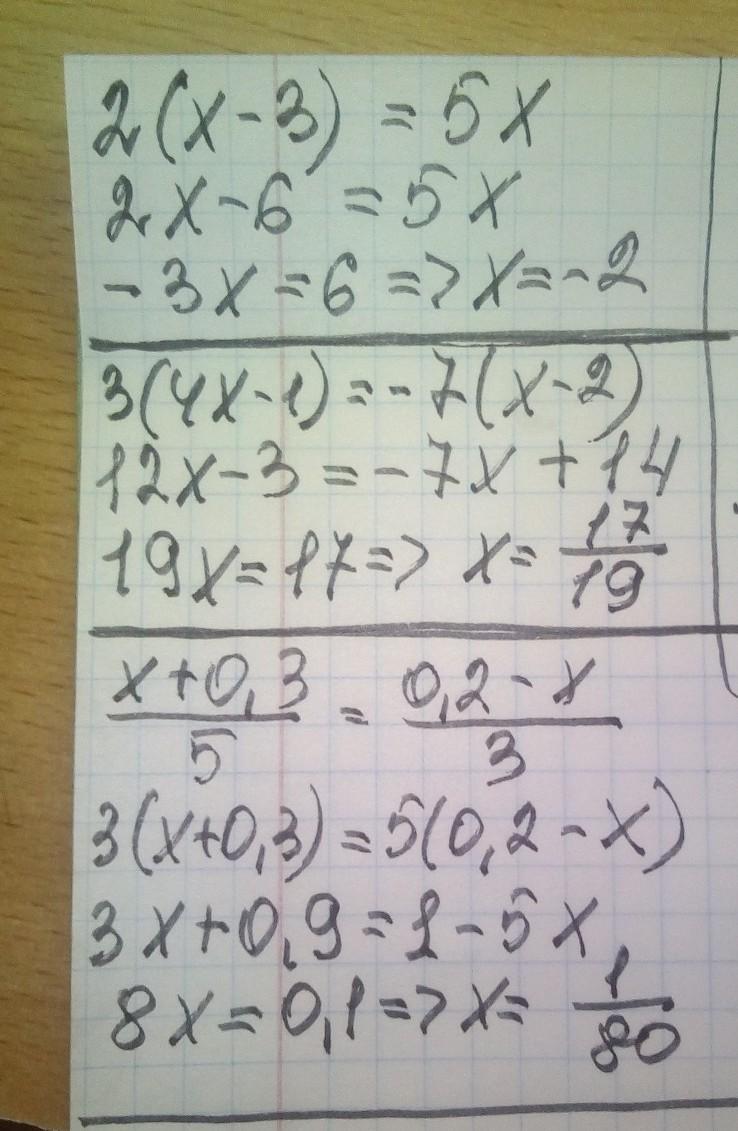 2(x-3) = 5x
2x-6 = 5x
-3x = 6 => x = -2
3(4x-1) = -7(x-2)
12x-3 = -7x + 14
19x = 17 => x = 17/19
x+0,3/5 = 0,2-x/3
3(x+0,3) = 5(0,2-x)
3x+0,9 = 1-5x
8x = 0,1 => x = 1/80